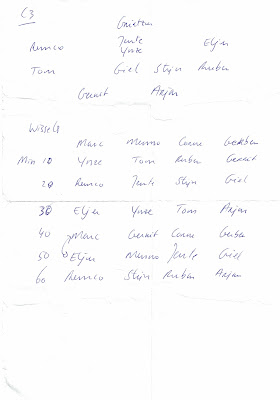 C3
Jente
Remco Ynze Eljer
Tom Giel Stijn Ruben
Gerrit Arjan
Wissels
Marc Menno Corne Gerben
Min 10 Ynze Tom Ruben Gerrit
20 Remco Jente Stijn Giel
30 Eljer Ynze Tom Arjan
40 Marc Gerrit Corne Gerben
50 Eljer Menno Jente Giel
60 Remco Stijn Ruben Arjan